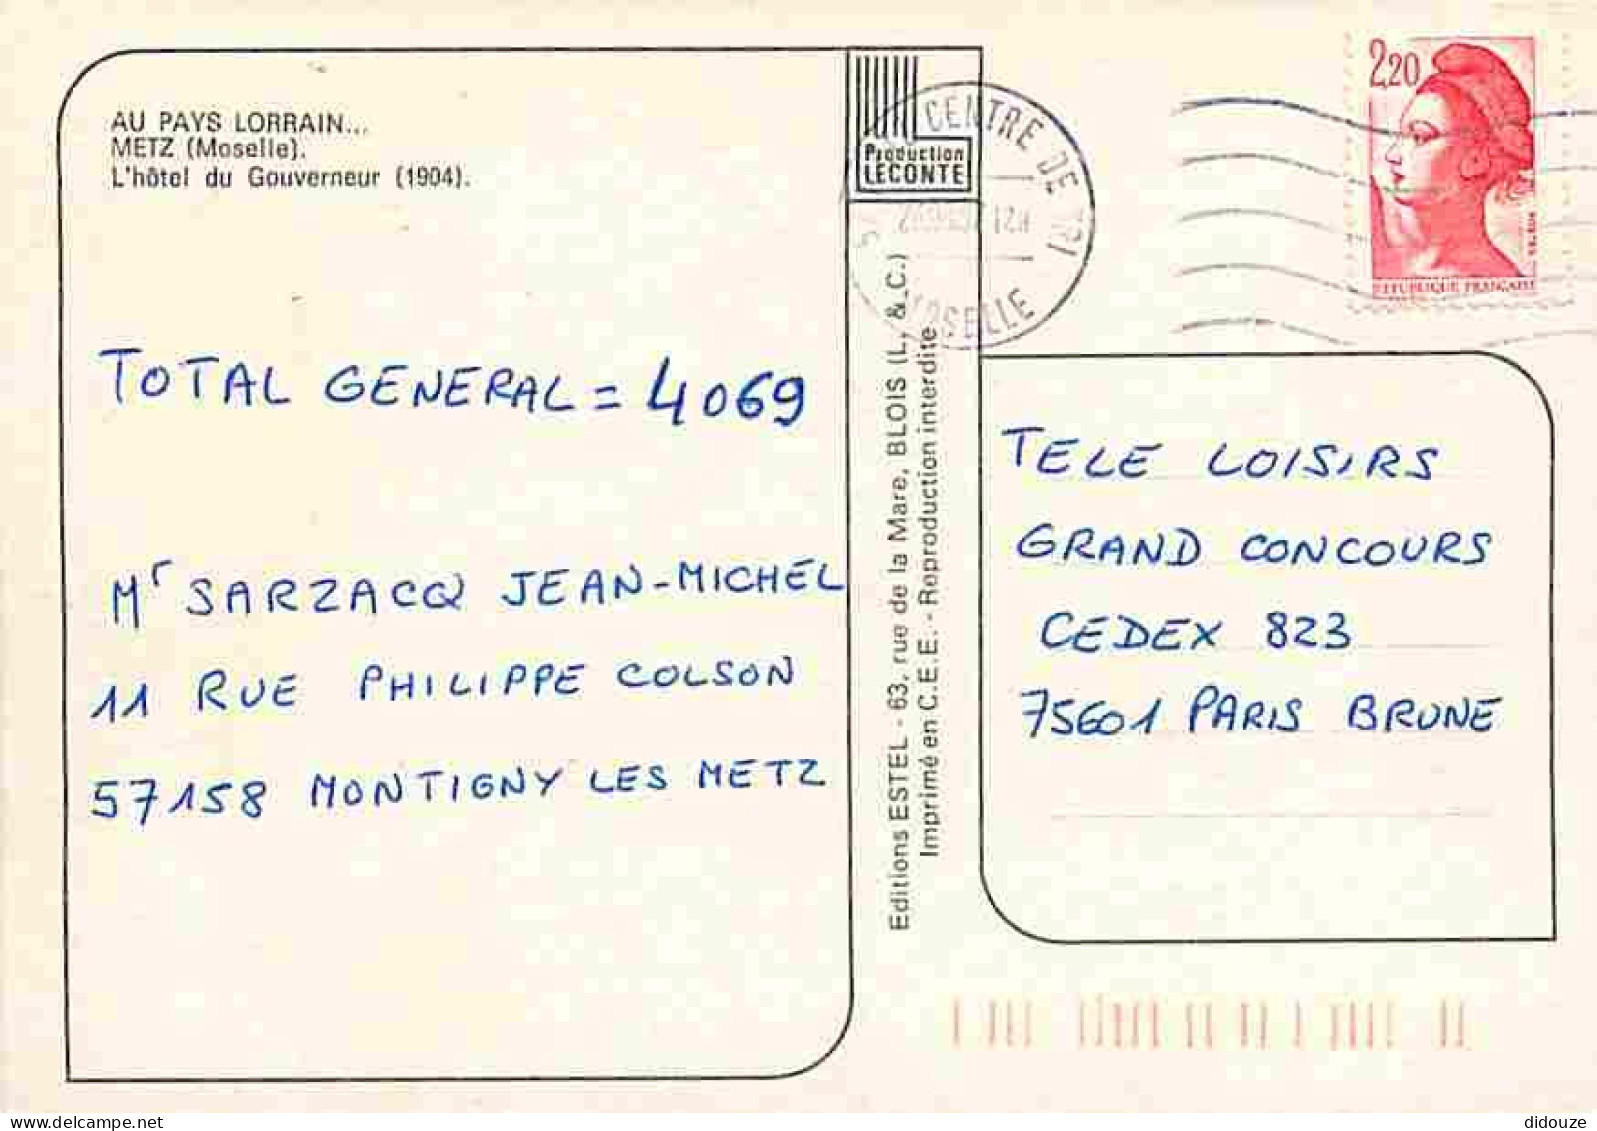 AU PAYS LORRAIN...
METZ (Moselle).
L'hôtel du Gouverneur (1904).
Production
LECONTE
CENTRE DE TRI
12H
MOSELLE
2,20
REPUBLIQUE FRANÇAISE
TOTAL GENERAL = 4069
Mr SARZACQ JEAN-MICHEL
11 RUE PHILIPPE COLSON
57158 MONTIGNY LES METZ
Editions ESTEL - 63, rue de la Mare, BLOIS (L. & C.)
Imprimé en C.E.E. - Reproduction interdite
TELE LOISIRS
GRAND CONCOURS
CEDEX 823
75601 PARIS BRUNE
delcampe.net
didouze